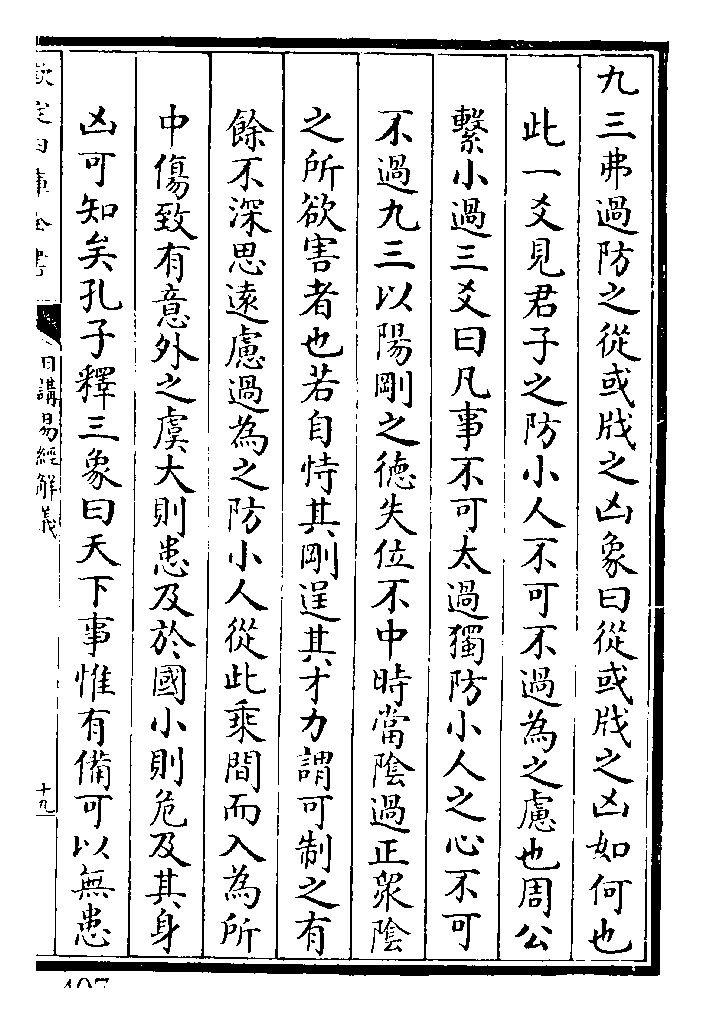 九三弗過防之從或戕之凶象曰從或戕之凶如何也
此一爻見君子之防小人不可不過為之慮也周公
繫小過三爻曰凡事不可太過獨防小人之心不可
不過九三以陽剛之德失位不中時當陰過正衆陰
之所欲害者也若自恃其剛逞其才力謂可制之有
餘不深思遠慮過為之防小人從此乘間而入為所
中傷致有意外之虞大則患及於國小則危及其身
凶可知矣孔子釋三象曰天下事惟有備可以無患
欽定四庫全書
日講易經解義
十九